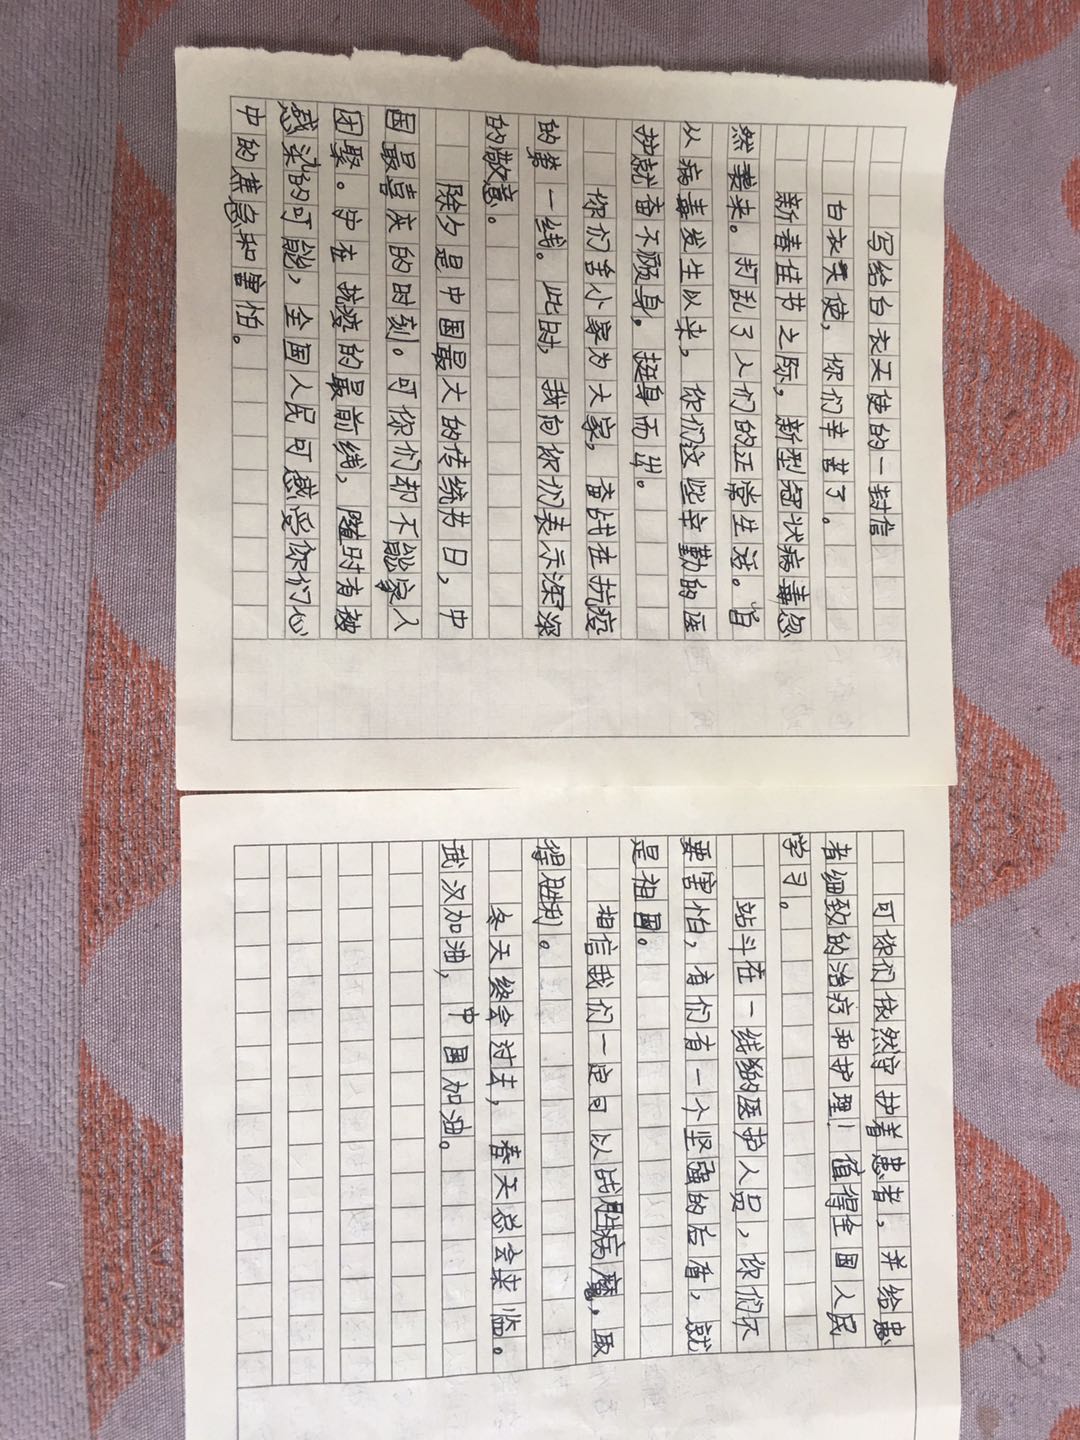 写给白衣天使的一封信
白衣天使，你们辛苦了。
新春佳节之际，新型冠状病毒忽
然袭来。打乱了人们的正常生活。自
从病毒发生以来，你们这些辛勤的医
护就奋不顾身，挺身而出。
你们舍小家为大家，奋战在抗疫
的第一线。此时，我向你们表示深深
的敬意。
除夕是中国最大的传统节日，中
国最喜庆的时刻。可你们却不能家人
团聚。守在抗疫的最前线，随时有被
感染的可能，全国人民可感受你们心
中的焦急和害怕。
可你们依然守护着患者，并给患
者细致的治疗和护理！值得全国人民
学习。
站斗在一线的医护人员，你们不
要害怕，有们有一个坚强的后盾，就
是祖国。
相信我们一定可以战胜病魔，取
得胜利。
冬天终会过去，春天总会来临。
武汉加油，中国加油。